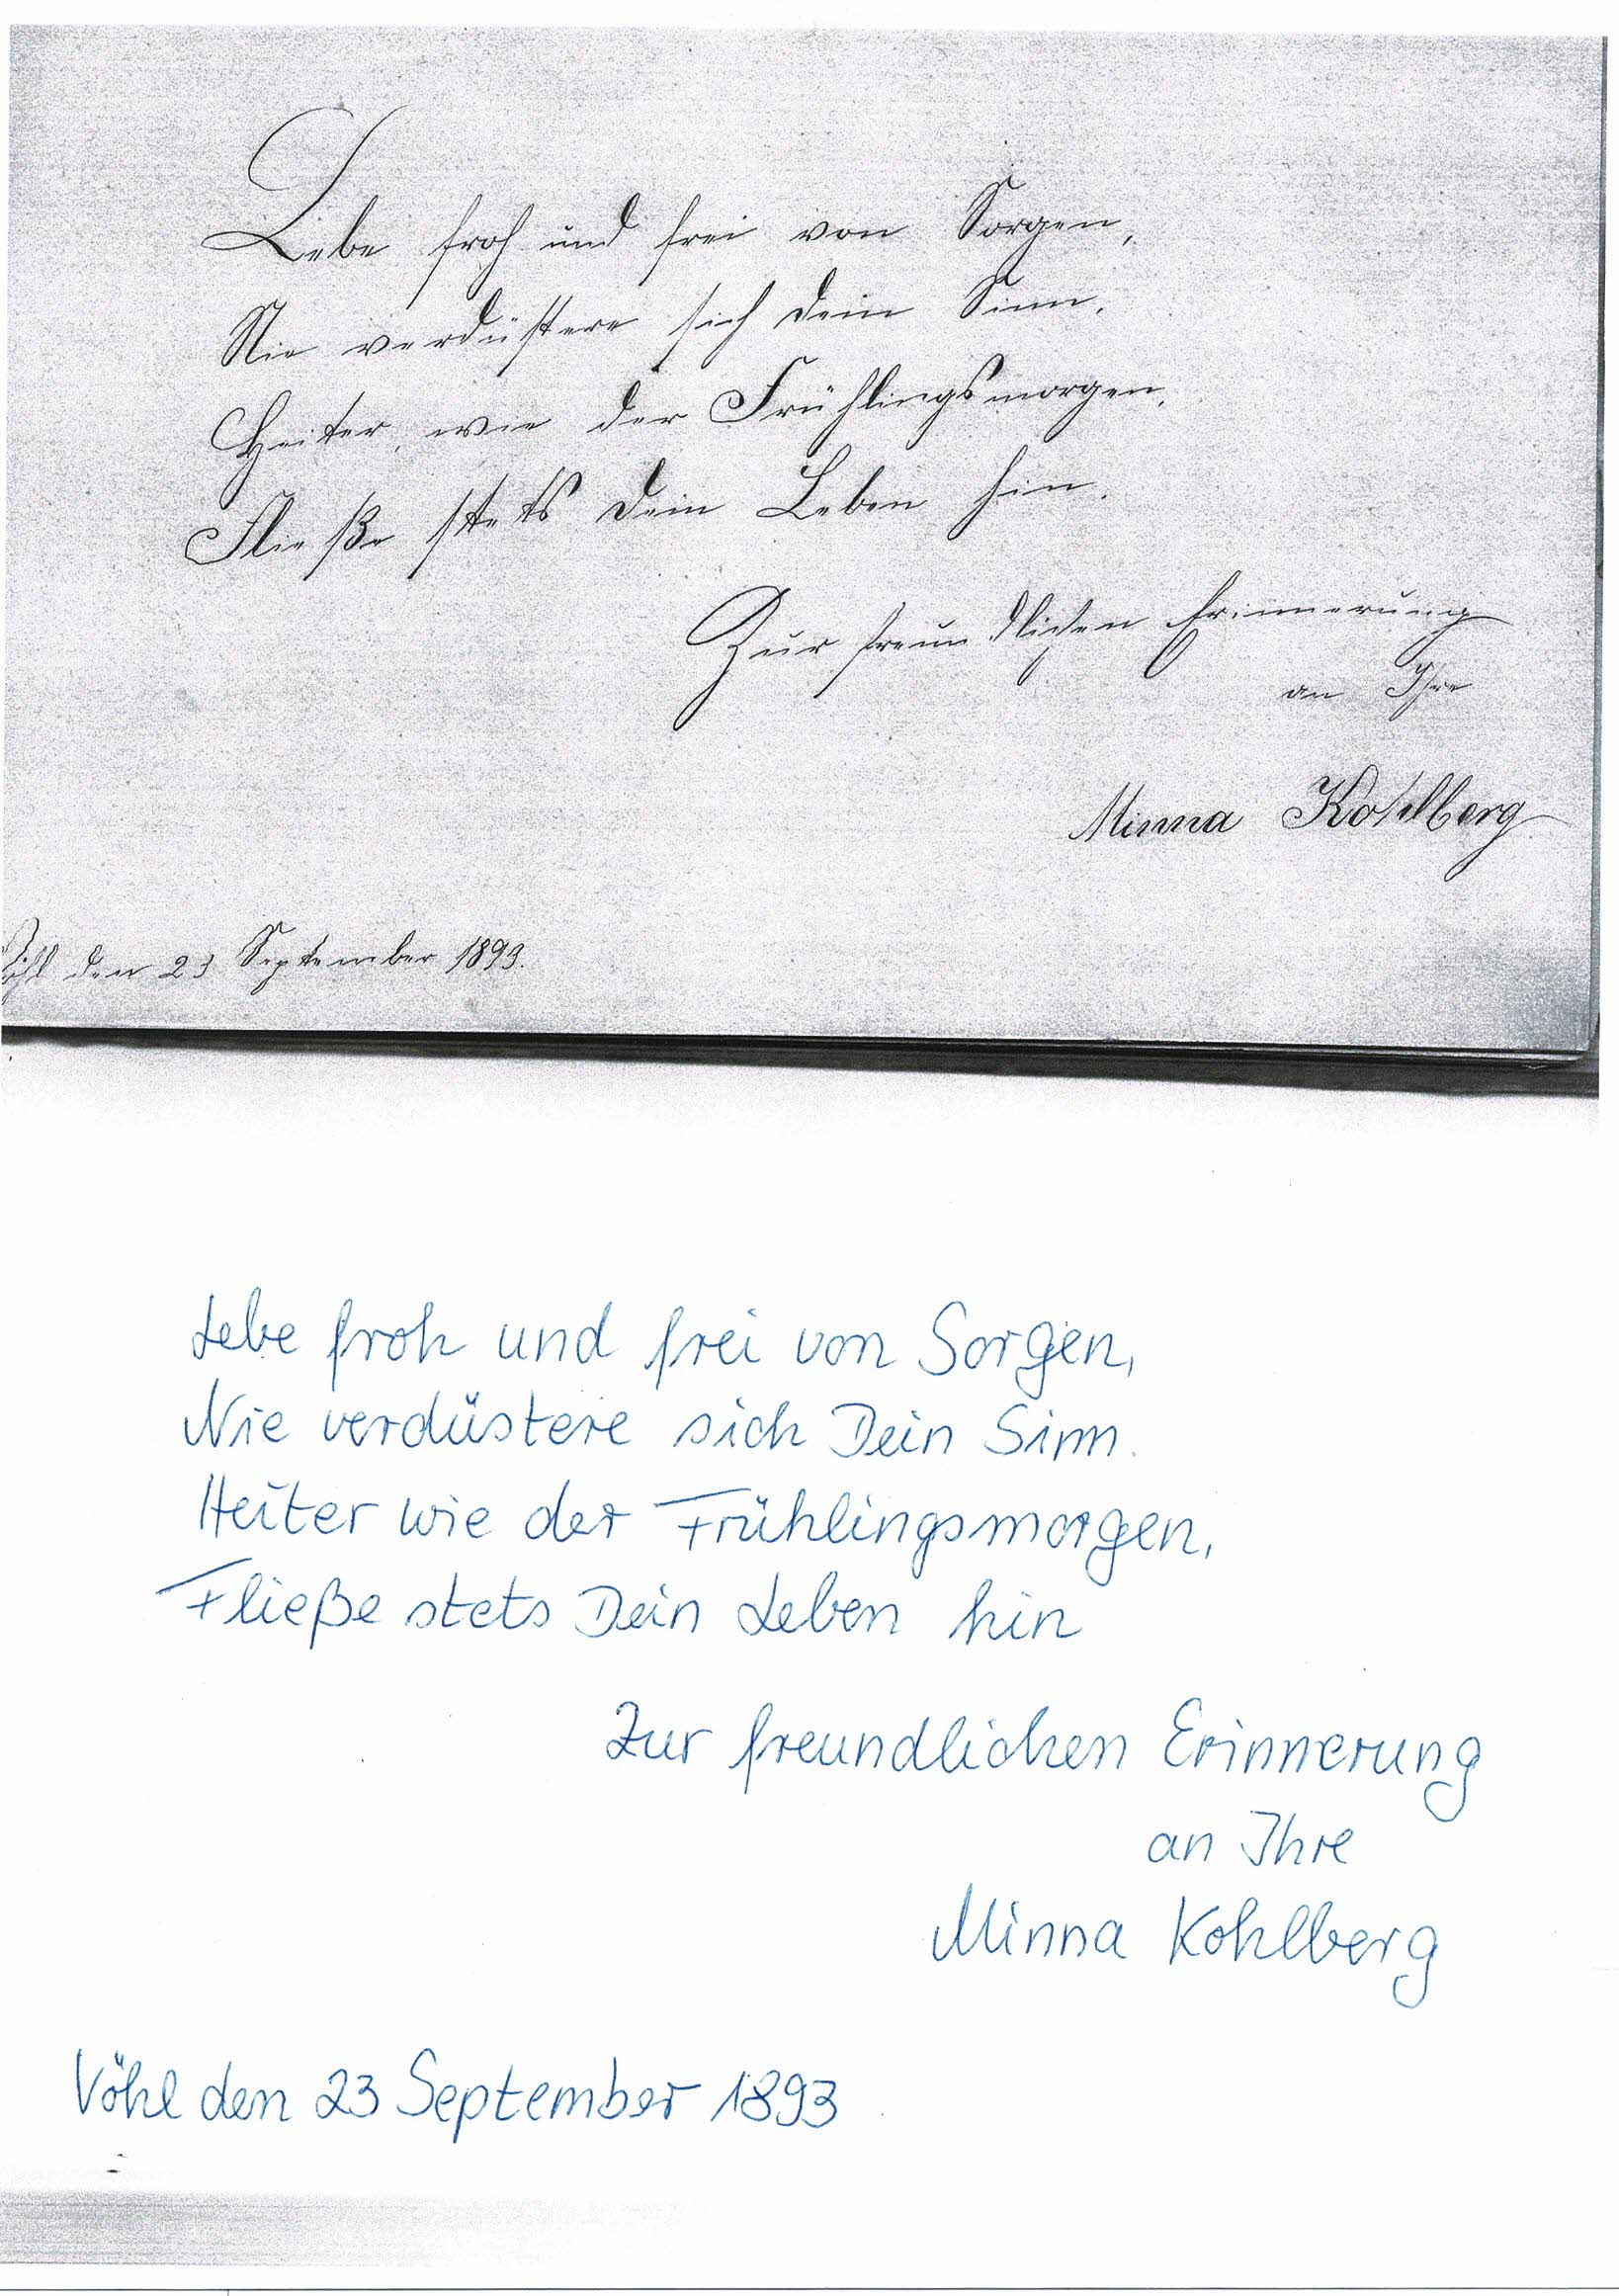 Lebe froh und frei von Sorgen,
Nie verdüstere sich dein Sinn.
Heiter, wie der Frühlingsmorgen,
Fließe stets dein Leben hin.
Zur freundlichen Erinnerung
an Ihre
Minna Kohlberg
Vöhl den 23 September 1893.
Lebe froh und frei von Sorgen,
Nie verdüstere sich Dein Sinn.
Heiter wie der Frühlingsmorgen,
Fließe stets Dein Leben hin
Zur freundlichen Erinnerung
an Ihre
Minna Kohlberg
Vöhl den 23 September 1893